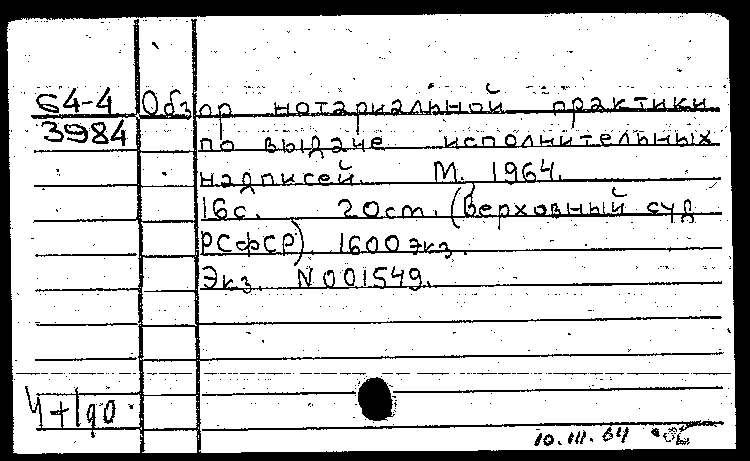 64-4 Обзор нотариальной практики
3984 по выдаче исполнительных
надписей. М. 1964.
16с. 20см. (Верховный суд
РСФСР). 1600 экз.
Экз. N 001549.
10.III.64